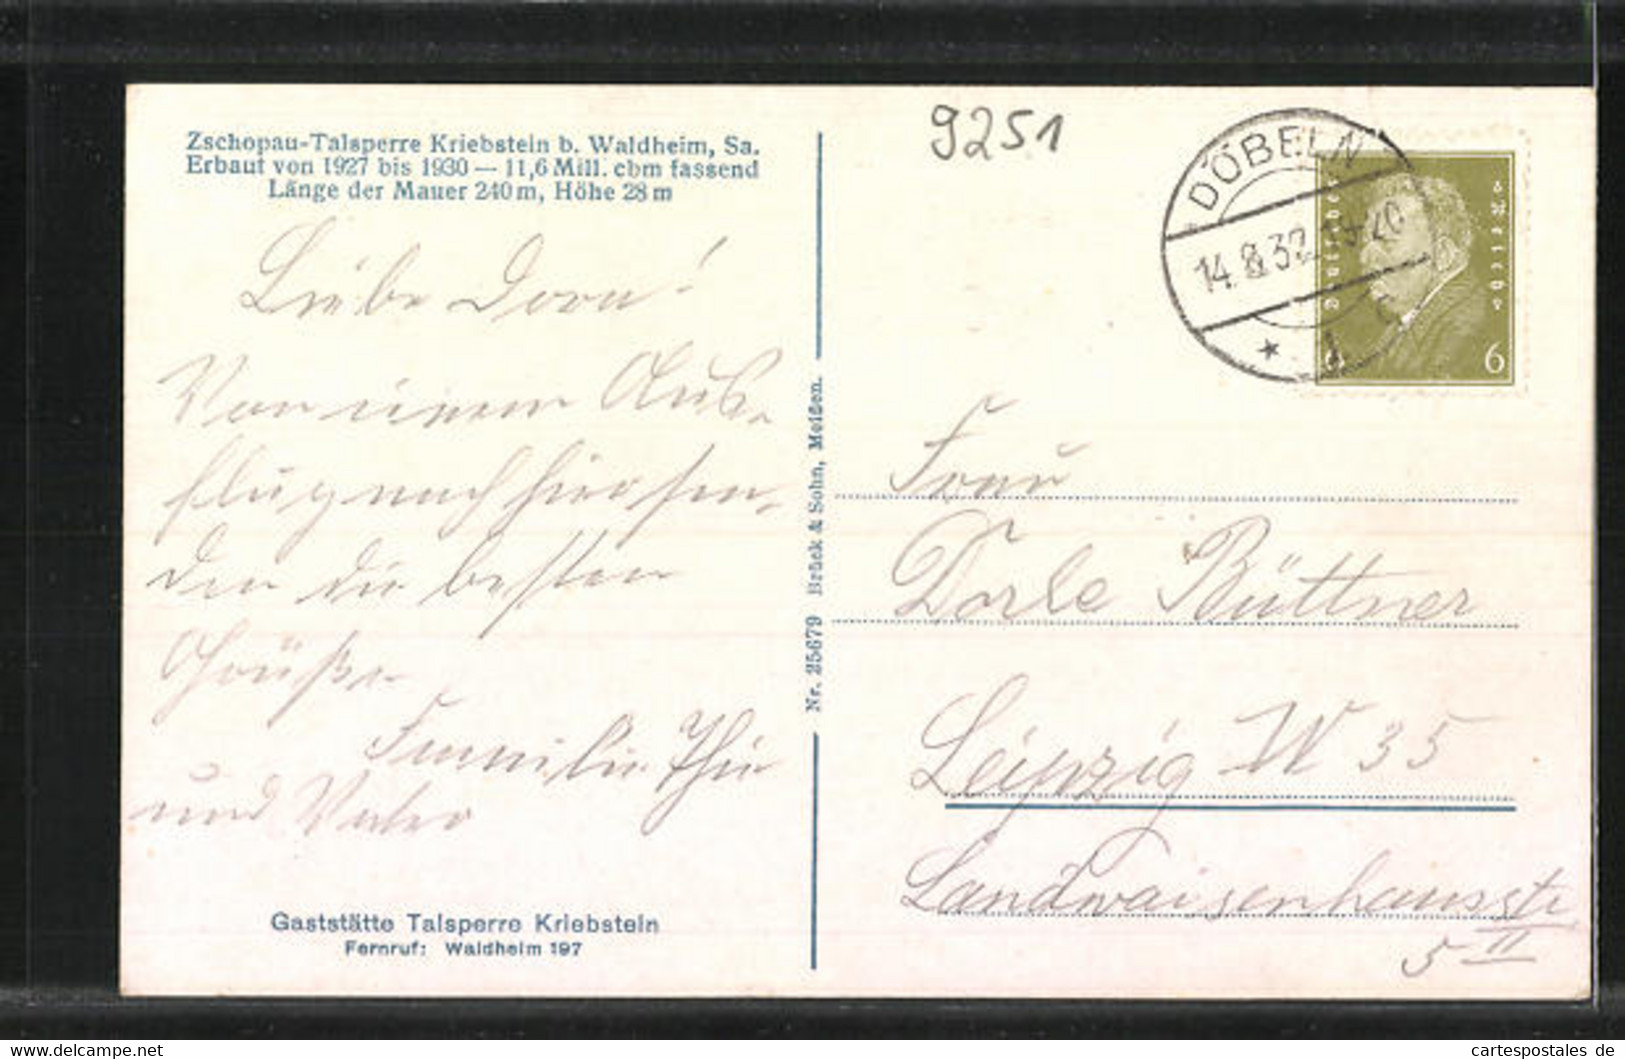 Zschopau-Talsperre Kriebstein b. Waldheim, Sa.
Erbaut von 1927 bis 1930 — 11,6 Mill. cbm fassend
Länge der Mauer 240 m, Höhe 28 m
Liebe Dora!
Von einem Aus-
flug nach hier sen-
den die besten
Grüße
Familie
und Vater
Gaststätte Talsperre Kriebstein
Fernruf: Waldheim 197
Nr. 25679 Brück & Sohn, Meißen.
9251
DÖBELN
14.8.32.19-20
* 1 c
Deutsches Reich
6 6
Frau
Dorle Büttner
Leipzig W 35
Landwaisenhausstr
5 II
cartespostales de
www.delcampe.net